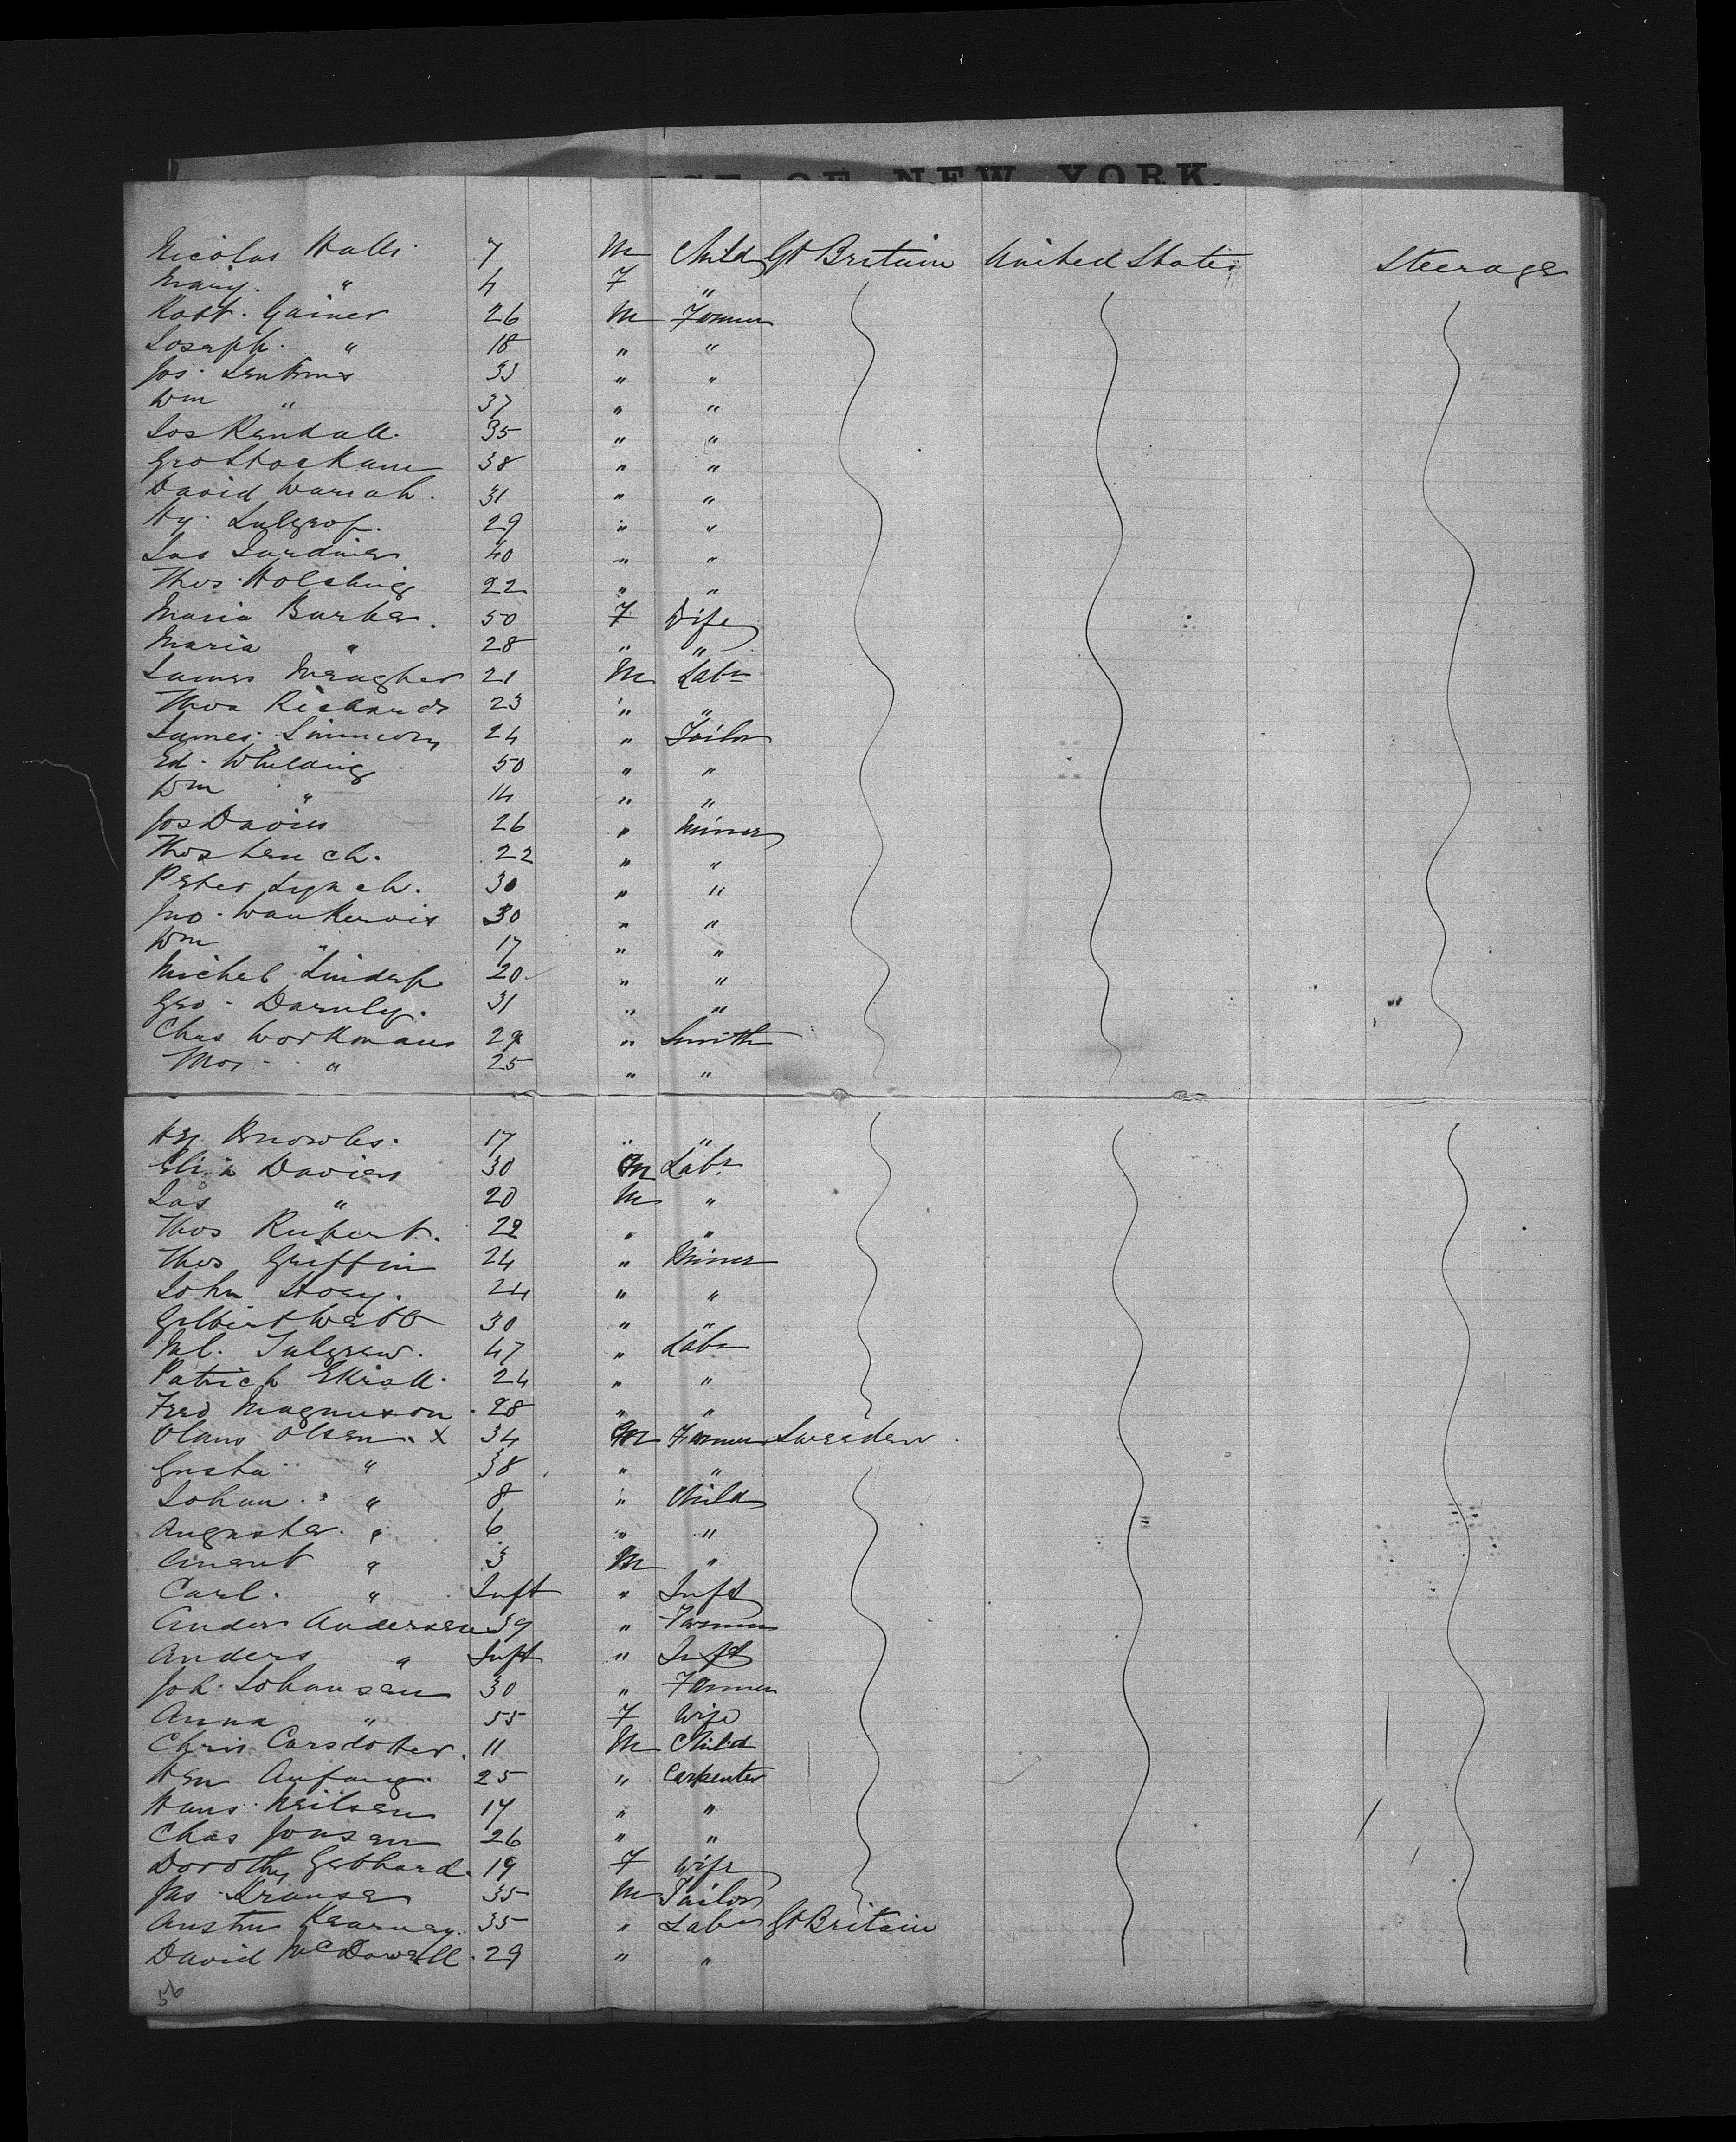 OF NEW YORK.
Nicolas Halls 7 M Child Gt Britain United States Steerage
Mary " 4 F "
Robt. Gainer 26 M Farmer
Joseph " 18 " "
Jos. Jenkins 33 " "
Wm " 37 " "
Jos Kendall 35 " "
Geo Stockam 38 " "
David 31 " "
Hy. 29 " "
Jas Jardine 40 " "
Thos. 22 " "
Maria Burke 50 F Wife
Maria " 28 " "
James Meagher 21 M Labr
Thos Richards 23 " "
James 24 " Tailor
Ed. Whilding 50 " "
Wm " 14 " "
Jos Davies 26 " Miner
Thos 22 " "
Peter Lynch. 30 " "
Jno. 30 " "
Wm " 17 " "
Michel 20 " "
Geo. Darnley. 31 " "
Chas Workman 29 " Smith
Thos " 25 " "
Hy Knowles. 17 " "
Davies 30 M Labr
Jas " 20 M "
Thos Rupert. 22 " "
Thos Griffin 24 " Miner
John Hoey. 24 " "
Gilbert Webb 30 " "
Ml. 47 " Labr
Patrick 24 " "
Fred Magnuson. 28 " "
Olaus Olsen. X 34 M Farmer Sweeden
Gusta " 38 " "
Johan " 8 " Child
Auguster. " 6 " "
" 3 M "
Carl. " Inft " Inft
Ander Andersen 39 " Farmer
Anders " Inft " Inft
Joh. Johansen 30 " Farmer
Anna " 55 F Wife
Chris Carsdoter. 11 M Child
Hen Anfang. 25 " Carpenter
Hans Neilsen 17 " "
Chas Jonsen 26 " "
Dorothy Gebhard. 19 F Wife
Jas Kranse 35 M Tailor
Austin Kearney. 35 " Labr Gt Britain
David McDowell. 29 " "
56